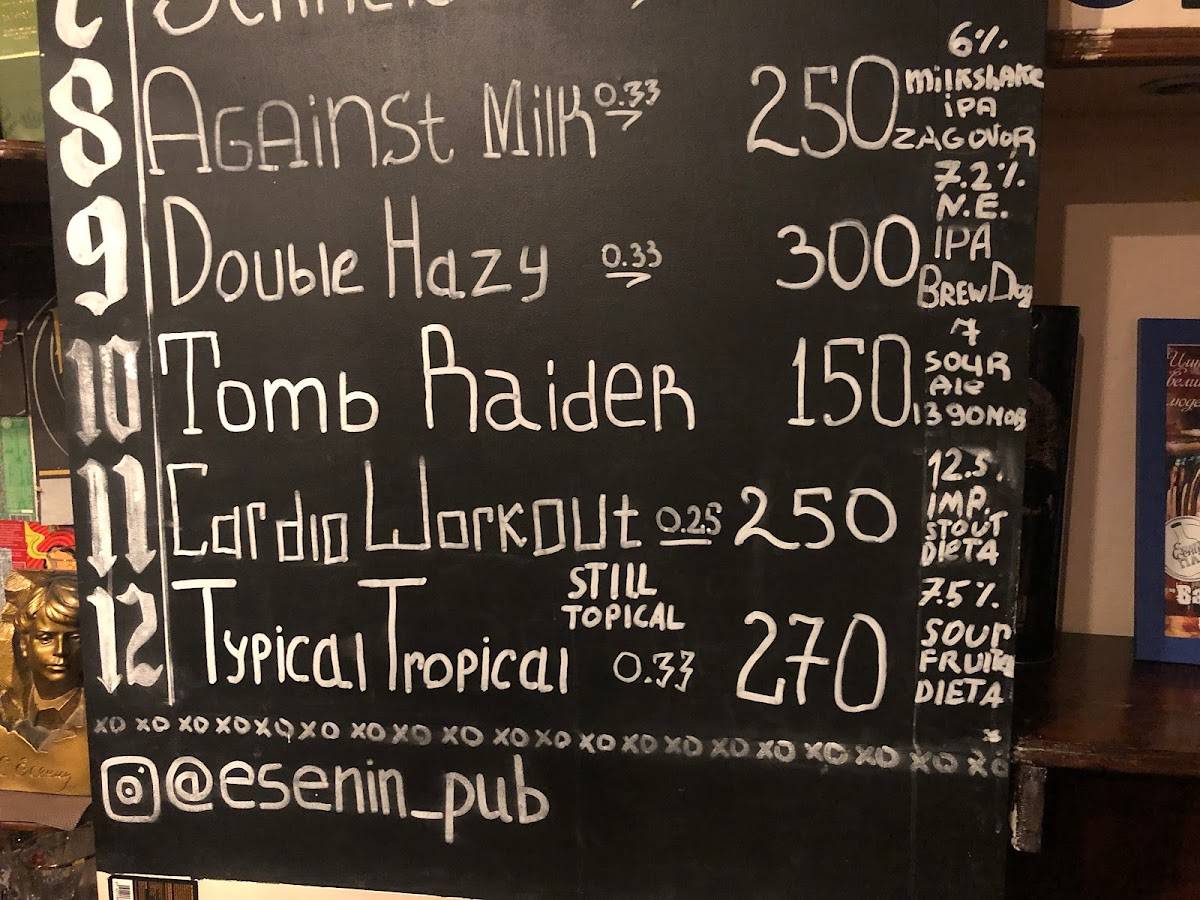 8 Against Milk 0.33 250 6% milkshake IPA ZAGOVOR
9 Double Hazy 0.33 300 7.2% N.E. IPA BrewDog
10 Tomb Raider 150 7 SOUR Ale 1390MOB
11 Cardio Workout 0.25 250 12.5. IMP. STOUT DIETA
STILL TOPICAL
12 Typical Tropical 0.33 270 7.5% SOUR FRUIT DIETA
xo xo xo xo xo xo xo xo xo xo xo xo xo xo xo xo xo xo xo xo
@esenin_pub